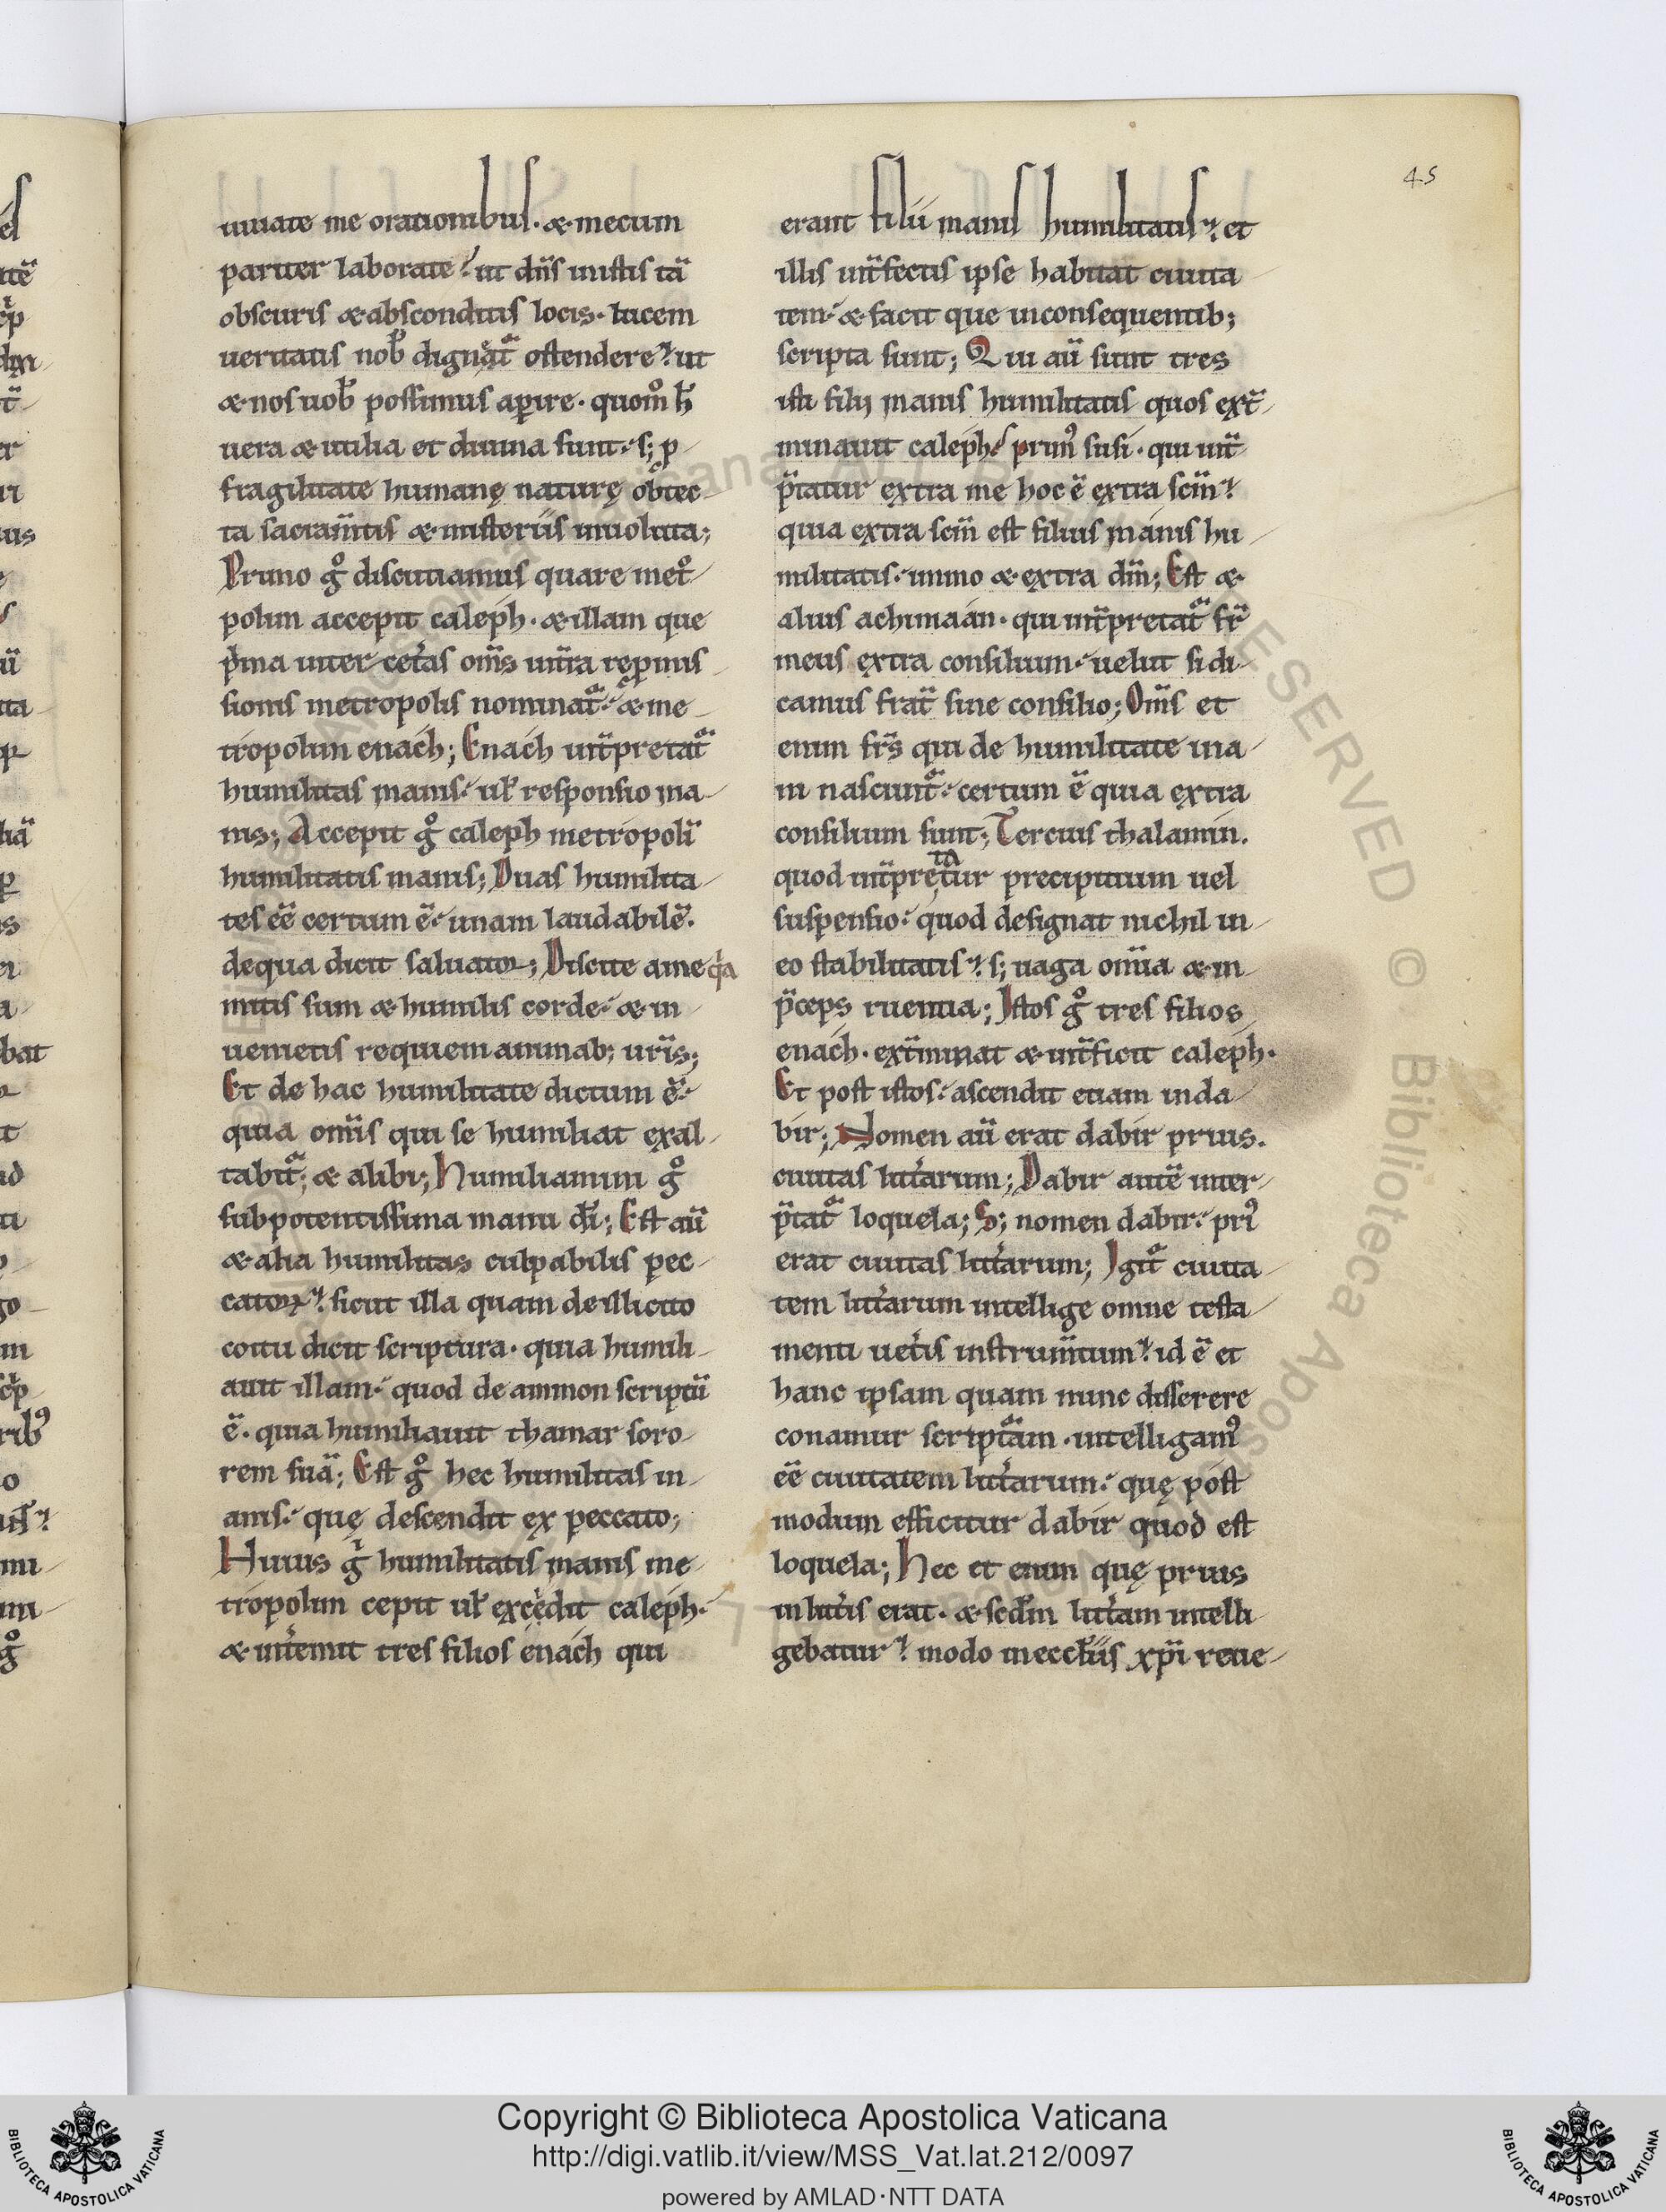 45
iuuate me orationibus. & mecum
pariter laborate? ut dn̄s in istis tā
obscuris & absconditis locis. lucem
ueritatis nob̄ dignat̄ ostendere? ut
& nos uob̄ possimus aꝑire. quom̊ h̄
uera & utilia et diuina sunt. s; p
fragilitate humanę naturę obtec
ta sacram̄tis & misteriis inuoluta;
Primo gͦ discutiamus quare metͦ
polim accepit caleph. & illam que
pͥma inter cet̄as om̄s int̄ra repmis
sionis metropolis nominat̄. & me
tropolim enach; Enach int̄pretat̄
humilitas inanis. ul̄ responsio ina
nis; Accepit gͦ caleph metropolī
humilitatis inanis; Duas humilita
tes eē certum ē. unam laudabilē.
de qua dicit saluatoꝝ; Discite a me qͥa
mitis sum & humilis corde. & in
uenietis requiem animab; ur̄is;
Et de hac humilitate dictum ē.
quia om̄is qui se humiliat exal
tabit̄; & alibi; Humiliamini gͦ
sub potentissima manu dī; Est aū
& alia humilitas culpabilis pec
catoꝝ? sicut illa quam de illicito
coitu dicit scriptura. quia humili
auit illam. quod de ammon scriptū
ē. quia humiliauit thamar soro
rem suā; Est gͦ hec humilitas in
anis. quę descendit ex peccato;
Huius gͥ humilitatis inanis me
tropolim cepit ul̄ excędit caleph.
& int̄emit tres filios enach qui
erant filii inanis humilitatis? et
illis int̄fectis ipse habitat ciuita
tem. & facit que in consequentib;
scripta sunt; Qui aū sunt tres
isti filij inanis humilitatis quos ext̄
minauit caleph? prim᷒ susi. qui int̄
p̄tatur extra me hoc ē extra sc̄m?
quia extra sc̄m est filius inanis hu
militatis. immo & extra dm̄; Est &
alius achimaan. qui int̄pretat̄ fr̄
meus extra consilium. uelut si di
camus frat̄ sine consilio; Om̄s et
enim fr̄s qui de humilitate ina
ni nascunt̄. certum ē quia extra
consilium sunt; Tercius thalamin.
quod int̄pretatur precipitium uel
suspensio. quod designat nichil in
eo stabilitatis? s; uaga om̄ia & in
p̄ceps ruentia; Istos gͦ tres filios
enach. ext̄minat & int̄ficit caleph.
Et post istos. ascendit etiam in da
bir; Nomen aū erat dabir prius.
ciuitas litt̄arum; Dabir autē inter
p̄tat̄ loquela; S; nomen dabir. pri᷒
erat ciuitas litt̄arum; Igit̄ ciuita
tem litt̄arum intellige omne testa
menti uet̄is instrum̄tum? id ē et
hanc ipsam quam nunc disserere
conamur scripturam. intelligam᷒
eē ciuitatem litt̄arum. quę post
modum efficitur dabir quod est
loquela; Hec et enim quę prius
in litt̄is erat. & scd̄m litt̄am intelli
gebatur? modo in eccl̄iis xp̄i reue
Copyright © Biblioteca Apostolica Vaticana
http://digi.vatlib.it/view/MSS_Vat.lat.212/0097
powered by AMLAD·NTT DATA